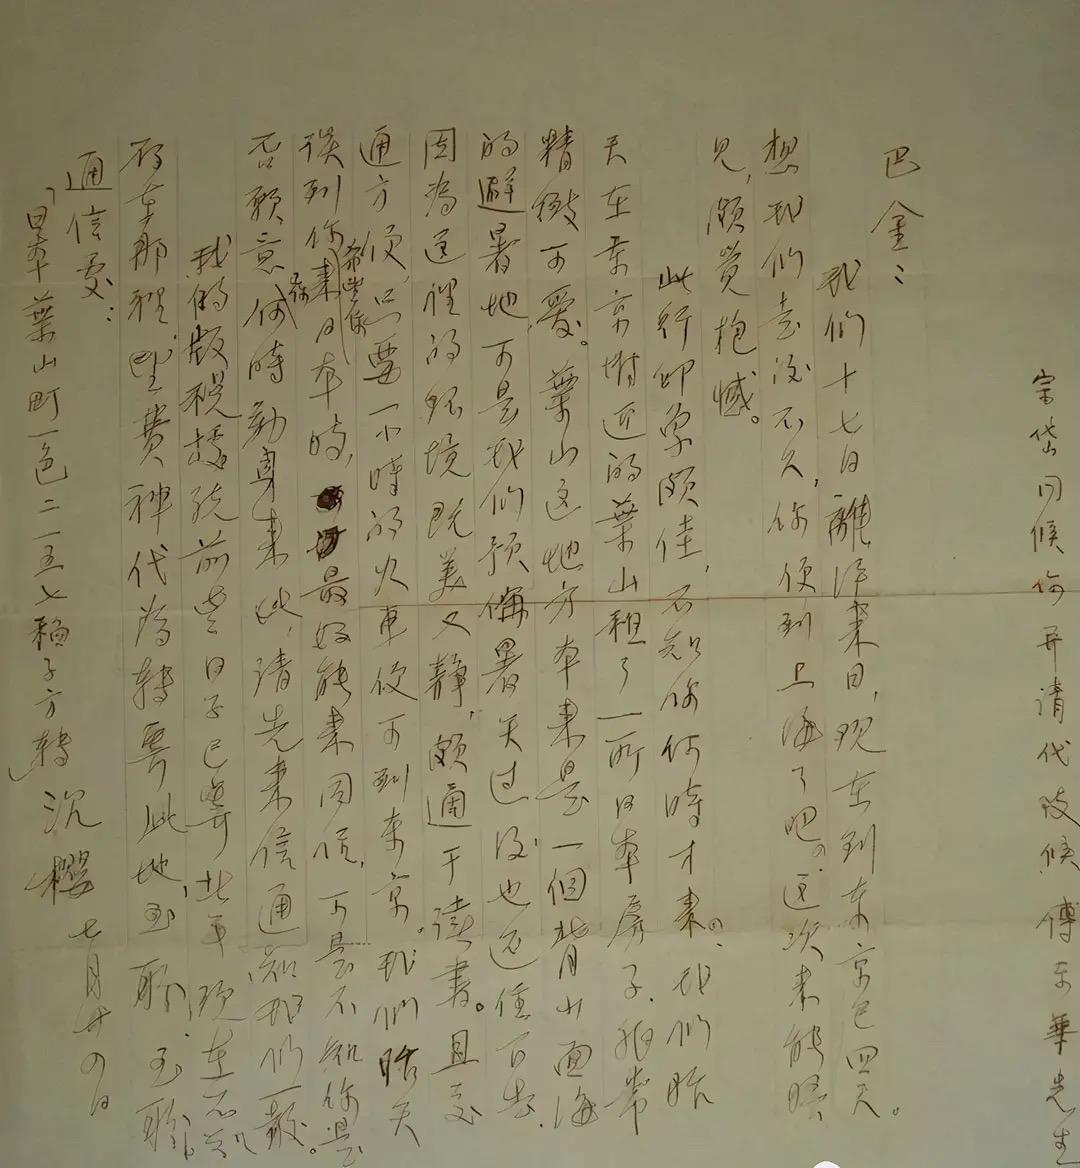 宗岱问候你并请代致候傅东华先生
巴金：
我们十七日離津来日，现在到东京已四天。
想我们走后不久，你便到上海了吧。这次未能晤
见，颇觉抱憾。
此行印象颇佳，不知你何时才来。我们昨
天在东京附近的葉山租了一所日本房子，非常
精緻可爱。葉山这地方本来是一個背山面海
的避暑地，可是我们预備暑天过后也还住下去，
因为这裡的环境既美又静，颇適于读书。且交
通方便，只要一小时的火车便可到东京。我们昨天
谈到你来日本時，希望你最好能来同住，可是不知你是
否願意，你何時動身来此，请先来信通知我们一声。
我的版税據说前些日子已寄北平，现在不知
存在那裡，望费神代为转寄此地，至盼，至盼。
通信处：
「日本葉山町一色二一五七賴子方轉」
沉櫻 七月廿四日